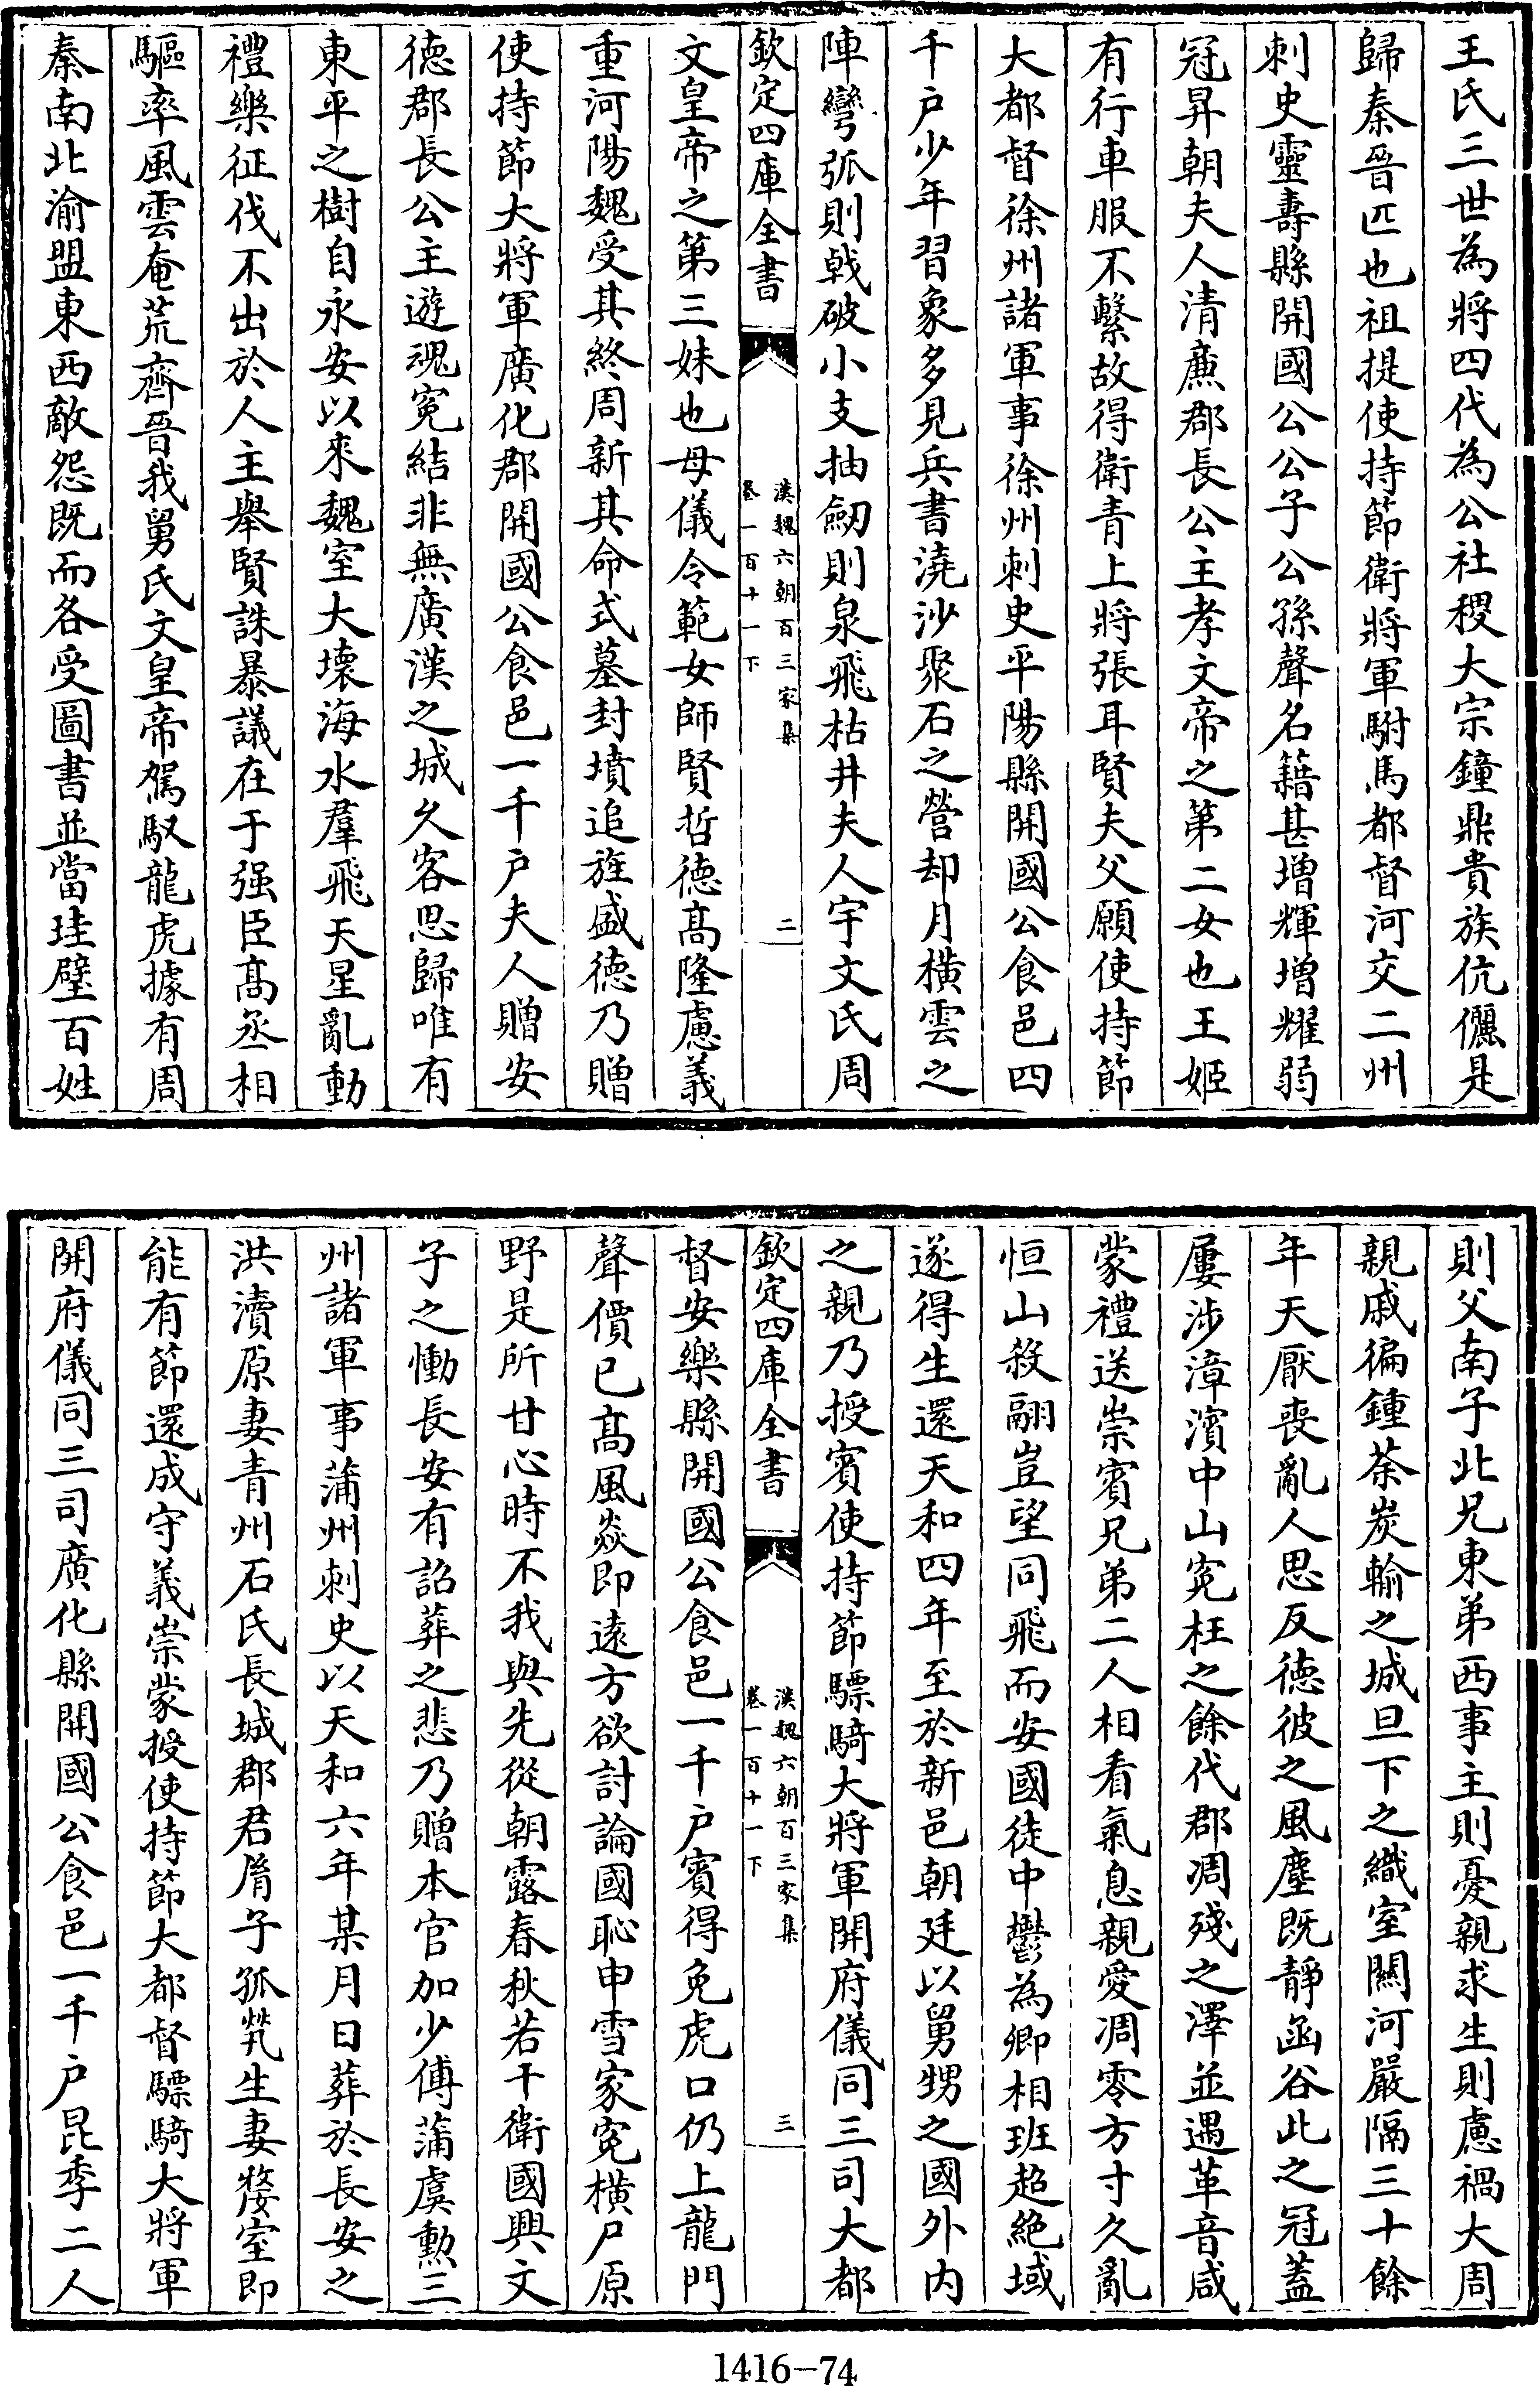 王氏三世為將四代為公社稷大宗鐘鼎貴族伉儷是
歸秦晉匹也祖提使持節衛將軍駙馬都督河交二州
刺史靈壽縣開國公公子公孫聲名籍甚增輝增耀弱
冠昇朝夫人清廉郡長公主孝文帝之第二女也王姬
有行車服不繫故得衛青上將張耳賢夫父願使持節
大都督徐州諸軍事徐州刺史平陽縣開國公食邑四
千户少年習象多見兵書澆沙聚石之營却月橫雲之
陣彎弧則戟破小支抽劒則泉飛枯井夫人宇文氏周
欽定四庫全書
漢魏六朝百三家集
卷一百十一下
二
文皇帝之第三妹也母儀令範女師賢哲德髙隆慮義
重河陽魏受其終周新其命式墓封墳追旌盛德乃贈
使持節大將軍廣化郡開國公食邑一千户夫人贈安
德郡長公主遊魂寃結非無廣漢之城久客思歸唯有
東平之樹自永安以來魏室大壞海水羣飛天星亂動
禮樂征伐不出於人主舉賢誅暴議在于强臣髙丞相
驅率風雲奄荒齊晉我舅氏文皇帝駕馭龍虎據有周
秦南北渝盟東西敵怨既而各受圖書並當珪璧百姓
則父南子北兄東弟西事主則憂親求生則慮禍大周
親戚徧鍾荼炭輸之城旦下之織室關河嚴隔三十餘
年天厭喪亂人思反德彼之風塵既靜函谷此之冠蓋
屢涉漳濱中山寃枉之餘代郡凋殘之澤並遇革音咸
蒙禮送崇賓兄弟二人相看氣息親愛凋零方寸久亂
恒山殺翮豈望同飛而安國徒中鬱為卿相班超絶域
遂得生還天和四年至於新邑朝廷以舅甥之國外内
之親乃授賓使持節驃騎大將軍開府儀同三司大都
欽定四庫全書
漢魏六朝百三家集
卷一百十一下
三
督安樂縣開國公食邑一千户賓得免虎口仍上龍門
聲價已髙風猋即遠方欲討論國恥申雪家寃橫尸原
野是所甘心時不我與先從朝露春秋若干衛國興文
子之慟長安有詔葬之悲乃贈本官加少傅蒲虞勲三
州諸軍事蒲州刺史以天和六年某月日葬於長安之
洪瀆原妻青州石氏長城郡君胥子孤煢生妻嫠室即
能有節還成守義崇蒙授使持節大都督驃騎大將軍
開府儀同三司廣化縣開國公食邑一千户昆季二人
1416-74